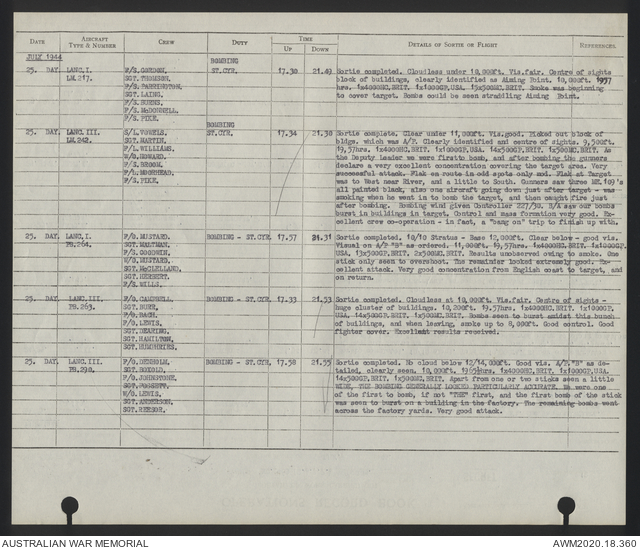 DATE AIRCRAFT TYPE & NUMBER CREW DUTY TIME UP DOWN DETAILS OF SORTIE OR FLIGHT REFERENCES.
JULY 1944
25. DAY. LANC.I. LM.217. BOMBING ST.CYR. 17.30 21.49
F/S. GORDON.
SGT. THOMSON.
F/S. TARRINGTON.
SGT. LAING.
F/S. BURNS.
F/S. McDONNELL.
F/S. PIKE.
Sortie completed. Cloudless under 10,000ft. Vis.fair. Centre of sights
block of buildings, clearly identified as Aiming Point. 10,000ft. 1957
hrs. 1x4000HC.BRIT. 1x1000GP.USA. 15x500HC.BRIT. Smoke was beginning
to cover target. Bombs could be seen straddling Aiming Point.
25. DAY. LANC. III. LM.242. BOMBING ST.CYR. 17.34 21.30
S/L. VOWELS.
SGT. MARTIN.
F/L. WILLIAMS.
W/O. HOWARD.
F/S. BROOM.
F/L. MOORHEAD.
F/S. PIKE.
Sortie complete. Clear under 11,000ft. Vis.good. Picked out block of
bldgs. which was A/P. Clearly identified and centre of sights. 9,500ft.
19,57hrs. 1x4000HC.BRIT. 1x1000GP.USA. 14x500GP.BRIT. 1x500HC.BRIT. As
the Deputy Leader we were firstto bomb, and after bombing the gunners
declare a very excellent concentration covering the target area. Very
successful attack. Flak en route in odd spots only mod. Flak at Target
was to West near River, and a little to South. Gunners saw three ME.109's
all painted black, also one aircraft going down just after target - was
smoking when he went in to bomb the target, and then caught fire just
after bombing. Bombing wind given Controller 227/30. B/A saw our bombs
burst in buildings in target. Control and mass formation very good. Ex-
cellent crew co-operation - in fact, a "bang on" trip to finish up with.
25. DAY LANC.I. PB.264. BOMBING - ST.CYR. 17.57 21.31
P/O. MUSTARD.
SGT. WALTMAN.
F/S. GOODWIN.
W/O. MUSTARD.
SGT. McCLELLAND.
SGT. HERBERT.
F/S. WILLS.
Sortie completed. 10/10 Stratus - Base 12,000ft. Clear below - good vis.
Visual on A/P "B" as ordered. 11,000ft. 19,57hrs. 1x4000HC.BRIT. 1x1000GP.
USA, 13x500GP.BRIT. 2x500HC.BRIT. Results unobserved owing to smoke. One
stick only seen to overshoot. The remainder looked extremely good. Ex-
cellent attack. Very good concentration from English coast to target, and
on return.
25. DAY. LANC.III. PB.263. BOMBING - ST.CYR. 17.33 21.33
F/O. CAMPBELL.
SGT. BURR.
F/O. BACH.
F/O. LEWIS.
SGT. DEARING.
SGT. HAMILTON.
SGT. HUMPHRIES.
Sortie completed. Cloudless at 10,000ft. Vis.fair. Centre of sights -
huge cluster of buildings. 10,200ft. 19.57hrs. 1x4000HC.BRIT. 1x1000GP.
USA. 14x500GP.BRIT. 1x500HC.BRIT. Bombs seen to burst amidst this bunch
of buildings, and when leaving, smoke up to 8,000ft. Good control. Good
fighter cover. Excellent results received.
25. DAY LANC.III. PB.290. BOMBING - ST.CYR. 17.58 21.55
P/O. DENHOLM.
SGT. BOXOLD.
P/O. JOHNSTONE.
SGT. FORSETH.
W/O. LEWIS.
SGT. ANDERSON.
SGT. REESOR.
Sortie completed. No cloud below 12/14,000ft. Good vis. A/P."B" as de-
tailed, clearly seen. 10,090ft. hrs. 1x4000HC.BRIT. 1x1000GP.USA.
14x500GP.BRIT. 1x500HC.BRIT. Apart from one or two sticks seen a little
WIDE, THE BOMBING GENERALLY LOOKED PARTICULARLY ACCURATE. We were one
of the first to bomb, if not "THE" first, and the first bomb of the stick
was seen to burst on a building in the factory. The remaining bombs went
across the factory yards. Very good attack.
AUSTRALIAN WAR MEMORIAL AWM2020.18.360